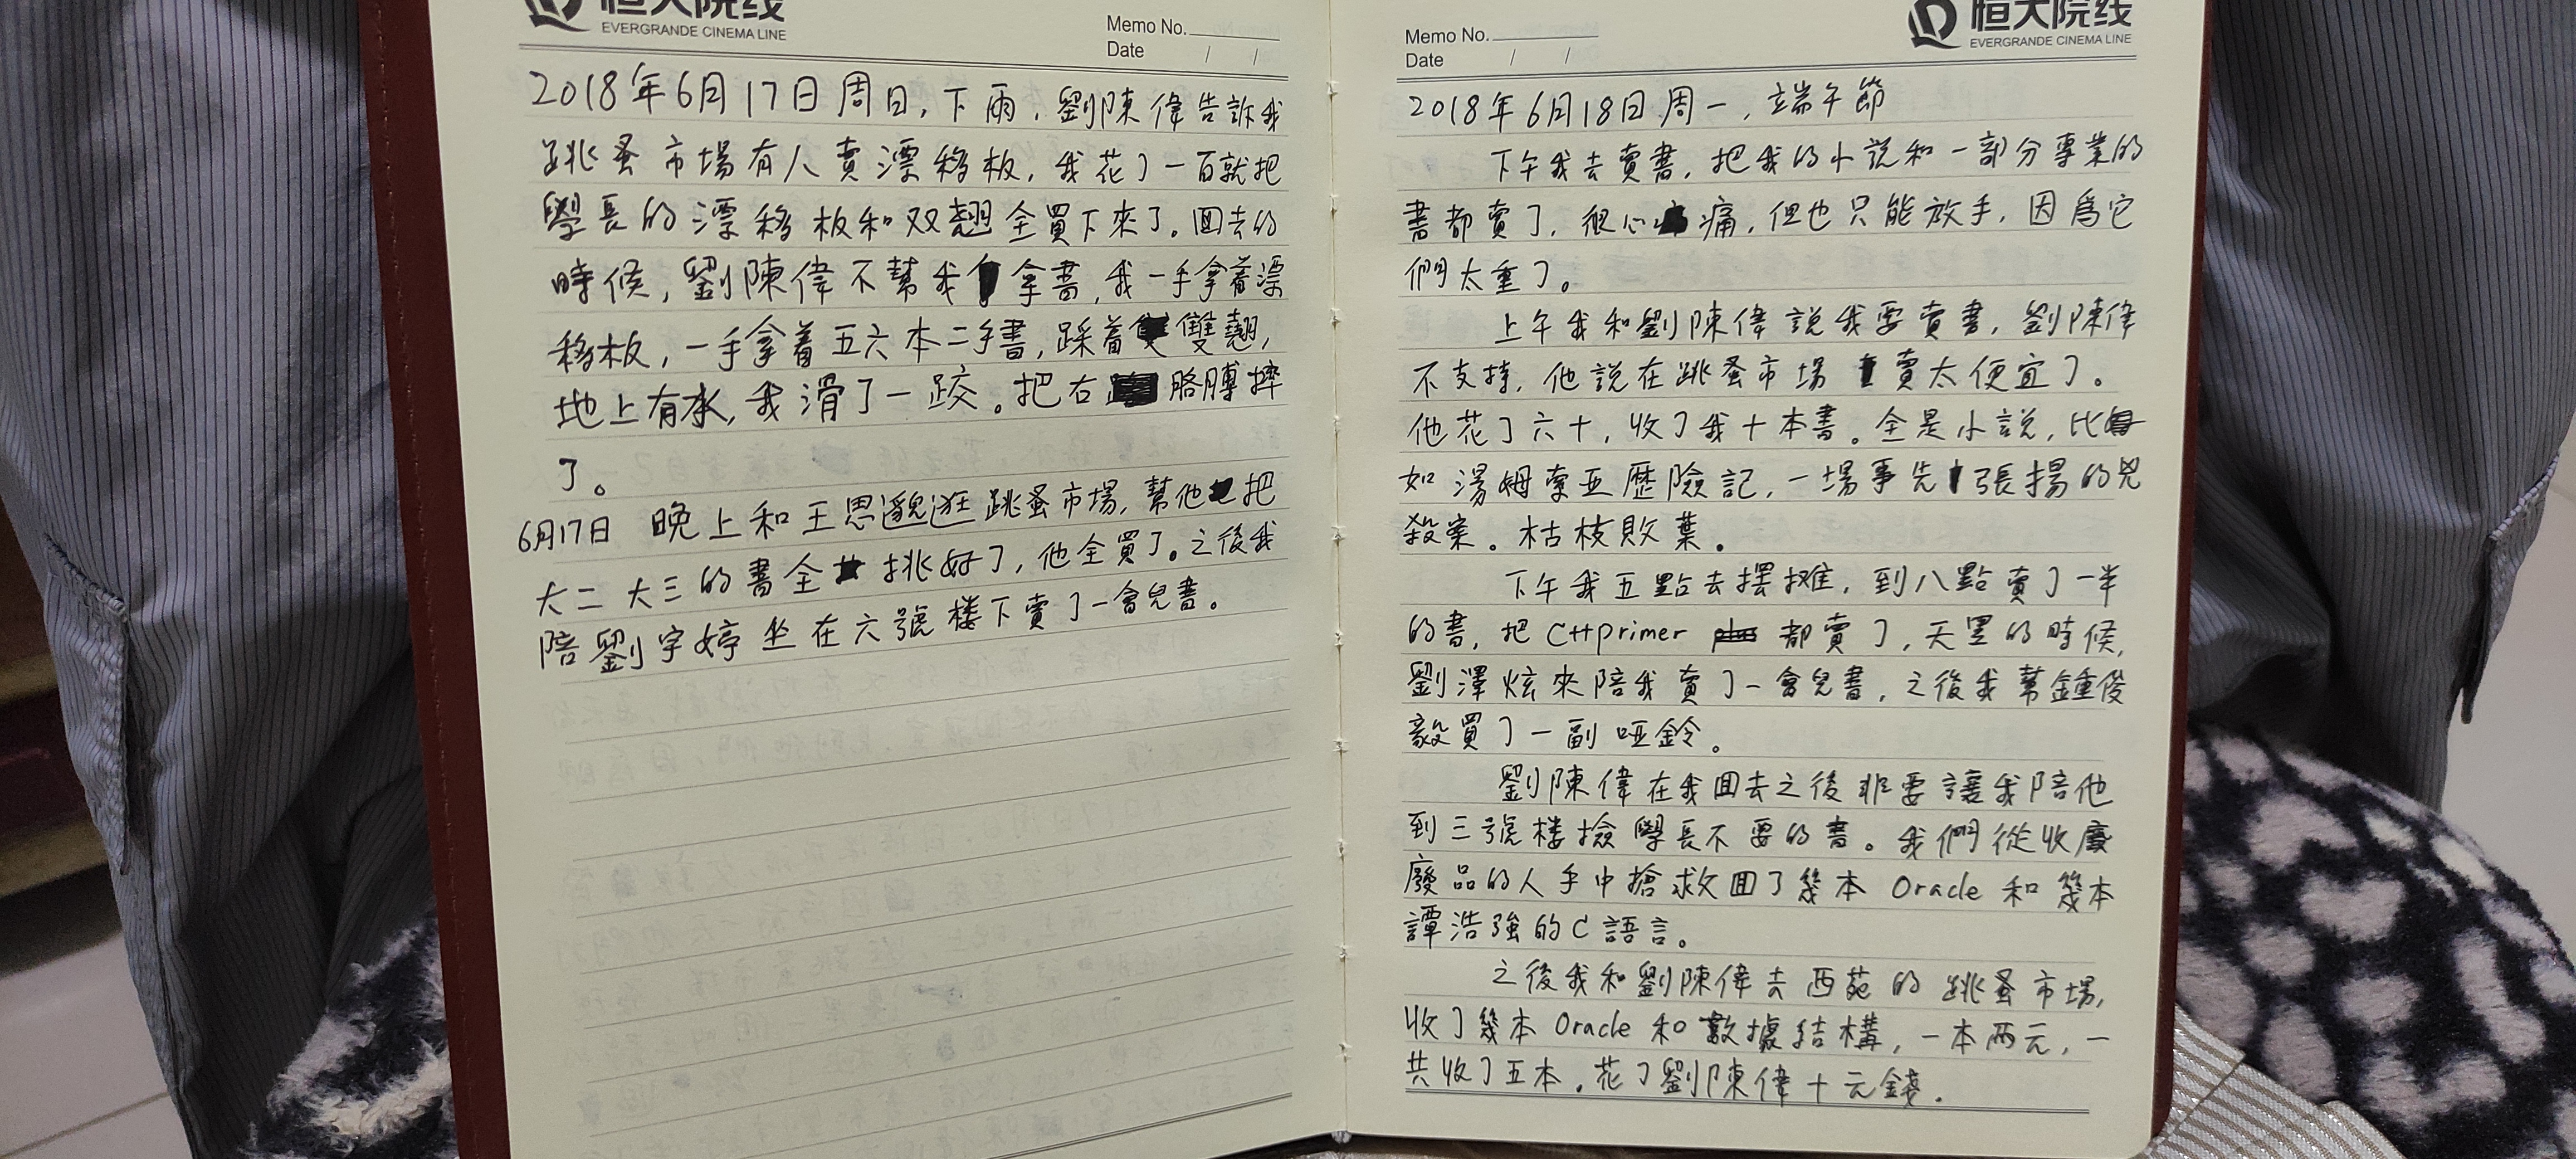 恒大院线
EVERGRANDE CINEMA LINE
Memo No.
Date / /
2018年6月17日周日,下雨,劉陳偉告訴我
跳蚤市場有人賣漂移板,我花了一百就把
學長的漂移板和双翹全買下來了。回去的
時候,劉陳偉不幫我拿書,我一手拿着漂
移板,一手拿着五六本二手書,踩着雙翹,
地上有水,我滑了一跤。把右胳膊摔
了。
6月17日 晚上和王思邈逛跳蚤市場,幫他把
大二大三的書全挑好了,他全買了。之後我
陪劉宇婷坐在六號楼下賣了一會兒書。
Memo No.
Date / /
恒大院线
EVERGRANDE CINEMA LINE
2018年6月18日周一,端午節
下午我去賣書,把我的小説和一部分專業的
書都賣了,很心痛,但也只能放手,因爲它
們太重了。
上午我和劉陳偉説我要賣書,劉陳偉
不支持,他説在跳蚤市場賣太便宜了。
他花了六十,收了我十本書。全是小説,比
如湯姆索亚歷險記,一場事先張揚的兇
殺案。枯枝敗葉。
下午我五點去擺攤,到八點賣了一半
的書,把C++primer 都賣了,天黑的時候,
劉澤炫來陪我賣了一會兒書,之後我幫鍾俊
毅買了一副哑鈴。
劉陳偉在我回去之後非要讓我陪他
到三號楼撿學長不要的書。我們從收廢
廢品的人手中搶救回了幾本 Oracle 和幾本
譚浩強的C語言。
之後我和劉陳偉去西苑的跳蚤市場,
收了幾本 Oracle 和數據結構,一本两元,一
共收了五本。花了劉陳偉十元錢.